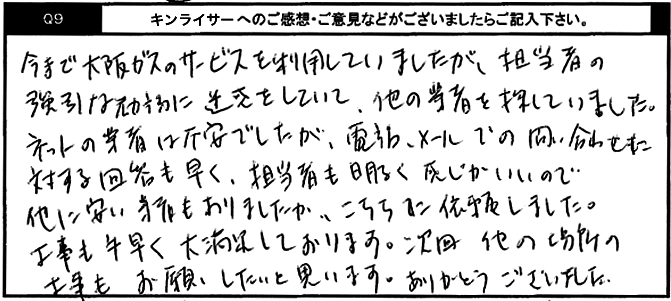 Q9 キンライサーへのご感想・ご意見などがございましたらご記入下さい。
今まで大阪ガスのサービスを利用していましたが、担当者の
強引な勧誘に閉口をしていて、他の業者を探していました。
ネットの業者は不安でしたが、電話、メールでの問い合わせに
対する回答も早く、担当者も明るく感じがいいので
他に安い業者もありましたが、こちらに依頼しました。
工事も手早く大満足しております。次回他の場所の
工事もお願いしたいと思います。ありがとうございました。